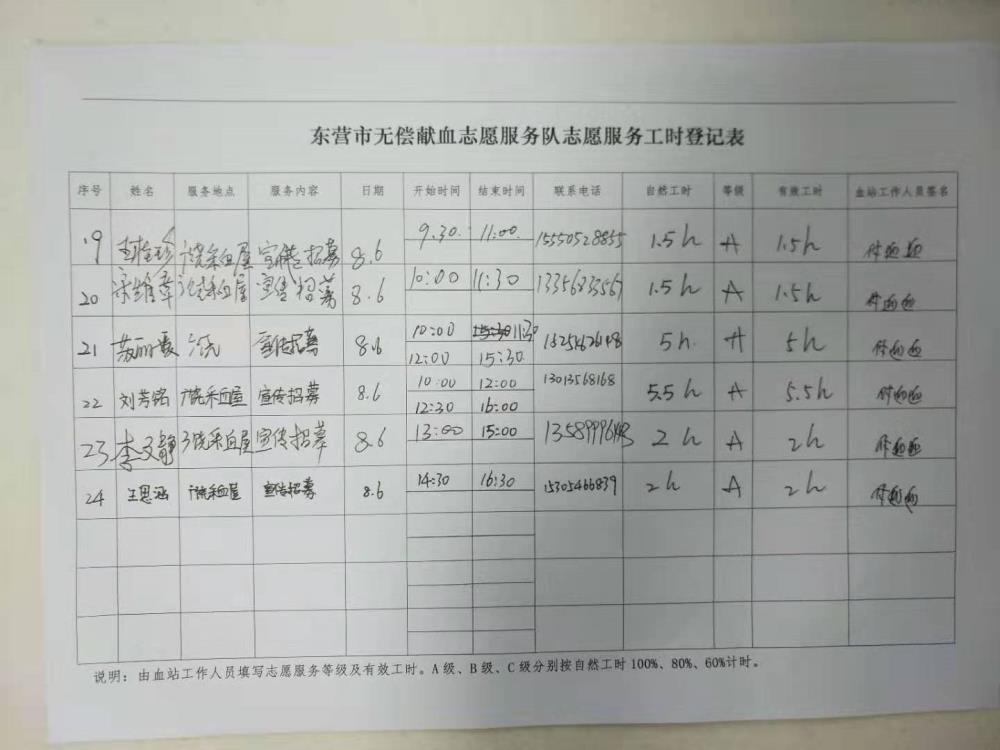 东营市无偿献血志愿服务队志愿服务工时登记表
序号 姓名 服务地点 服务内容 日期 开始时间 结束时间 联系电话 自然工时 等级 有效工时 血站工作人员签名
19 采血屋 宣传招募 8.6 9.30 11:00 15550528855 1.5h A 1.5h
20 采血屋 宣传招募 8.6 10:00 11:30 1.5h A 1.5h
21 宣传招募 8.6 10:00 11:30 5h A 5h
12:00 15:30
22 刘芳铭 采血屋 宣传招募 8.6 10:00 12:00 13013568168 5.5h A 5.5h
12:30 16:00
23 李文静 采血屋 宣传招募 8.6 13:00 15:00 2h A 2h
24 王思涵 采血屋 宣传招募 8.6 14:30 16:30 15305466839 2h A 2h
说明：由血站工作人员填写志愿服务等级及有效工时。A级、B级、C级分别按自然工时100%、80%、60%计时。